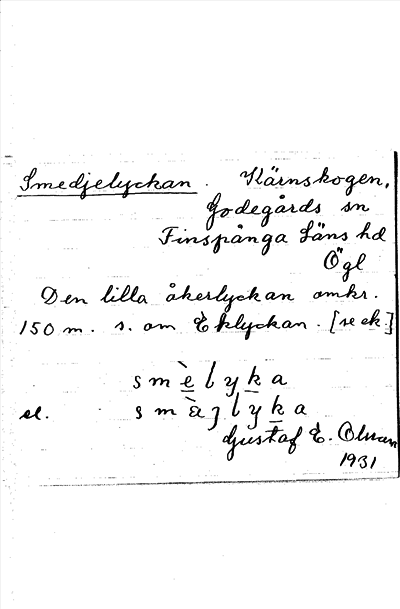 Smedjelyckan. Kärnskogen,
Godegårds sn
Finspånga läns hd
Ögl
Den lilla åkerlyckan omkr.
150 m. s. om Eklyckan. [se ek.]
smèlyka
el. smàjlyka
Gustaf E. Olsson
1931